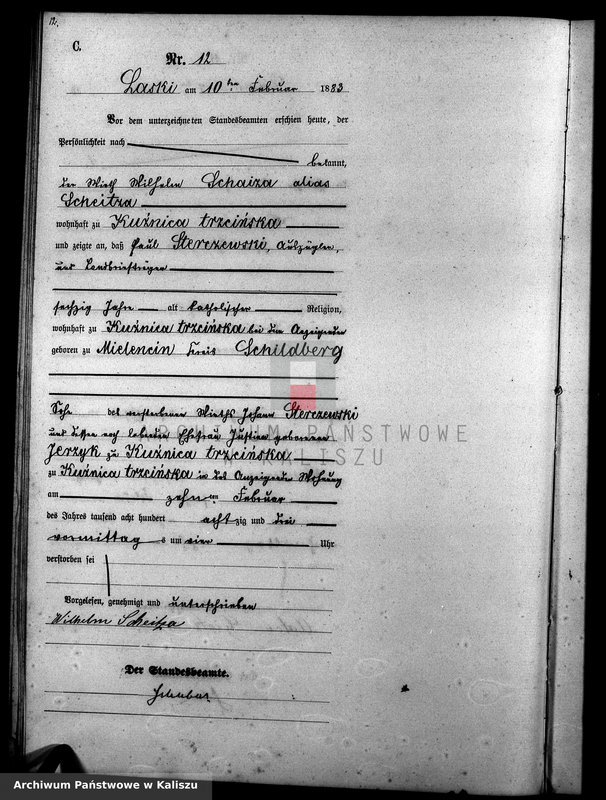 12.
C.
Nr. 12
Laski am 10ten Februar 1883
Vor dem unterzeichneten Standesbeamten erschien heute, der
Persönlichkeit nach
bekannt,
der Wirth Wilhelm Schaiza alias
Scheitza
wohnhaft zu Kuźnica trzcińska
und zeigte an, daß Paul Sterczewski, Auszügler,
und
sechzig Jahre alt katholischer Religion,
wohnhaft zu Kuźnica trzcińska bei dem Anzeigenden
geboren zu Mielencin Kreis Schildberg
Sohn des verstorbenen Wirths Johann Sterczewski
und dessen noch lebenden Ehefrau Justina geborenen
Jerzyk zu Kuźnica trzcińska
zu Kuźnica trzcińska in des Anzeigenden Wohnung
am zehnten Februar
des Jahres tausend acht hundert achtzig und drei
vormittags um vier Uhr
verstorben sei
Vorgelesen, genehmigt und unterschrieben
Wilhelm Scheitza
Der Standesbeamte.
ARCHIWUM PAŃSTWOWE
W KALISZU
Archiwum Państwowe w Kaliszu